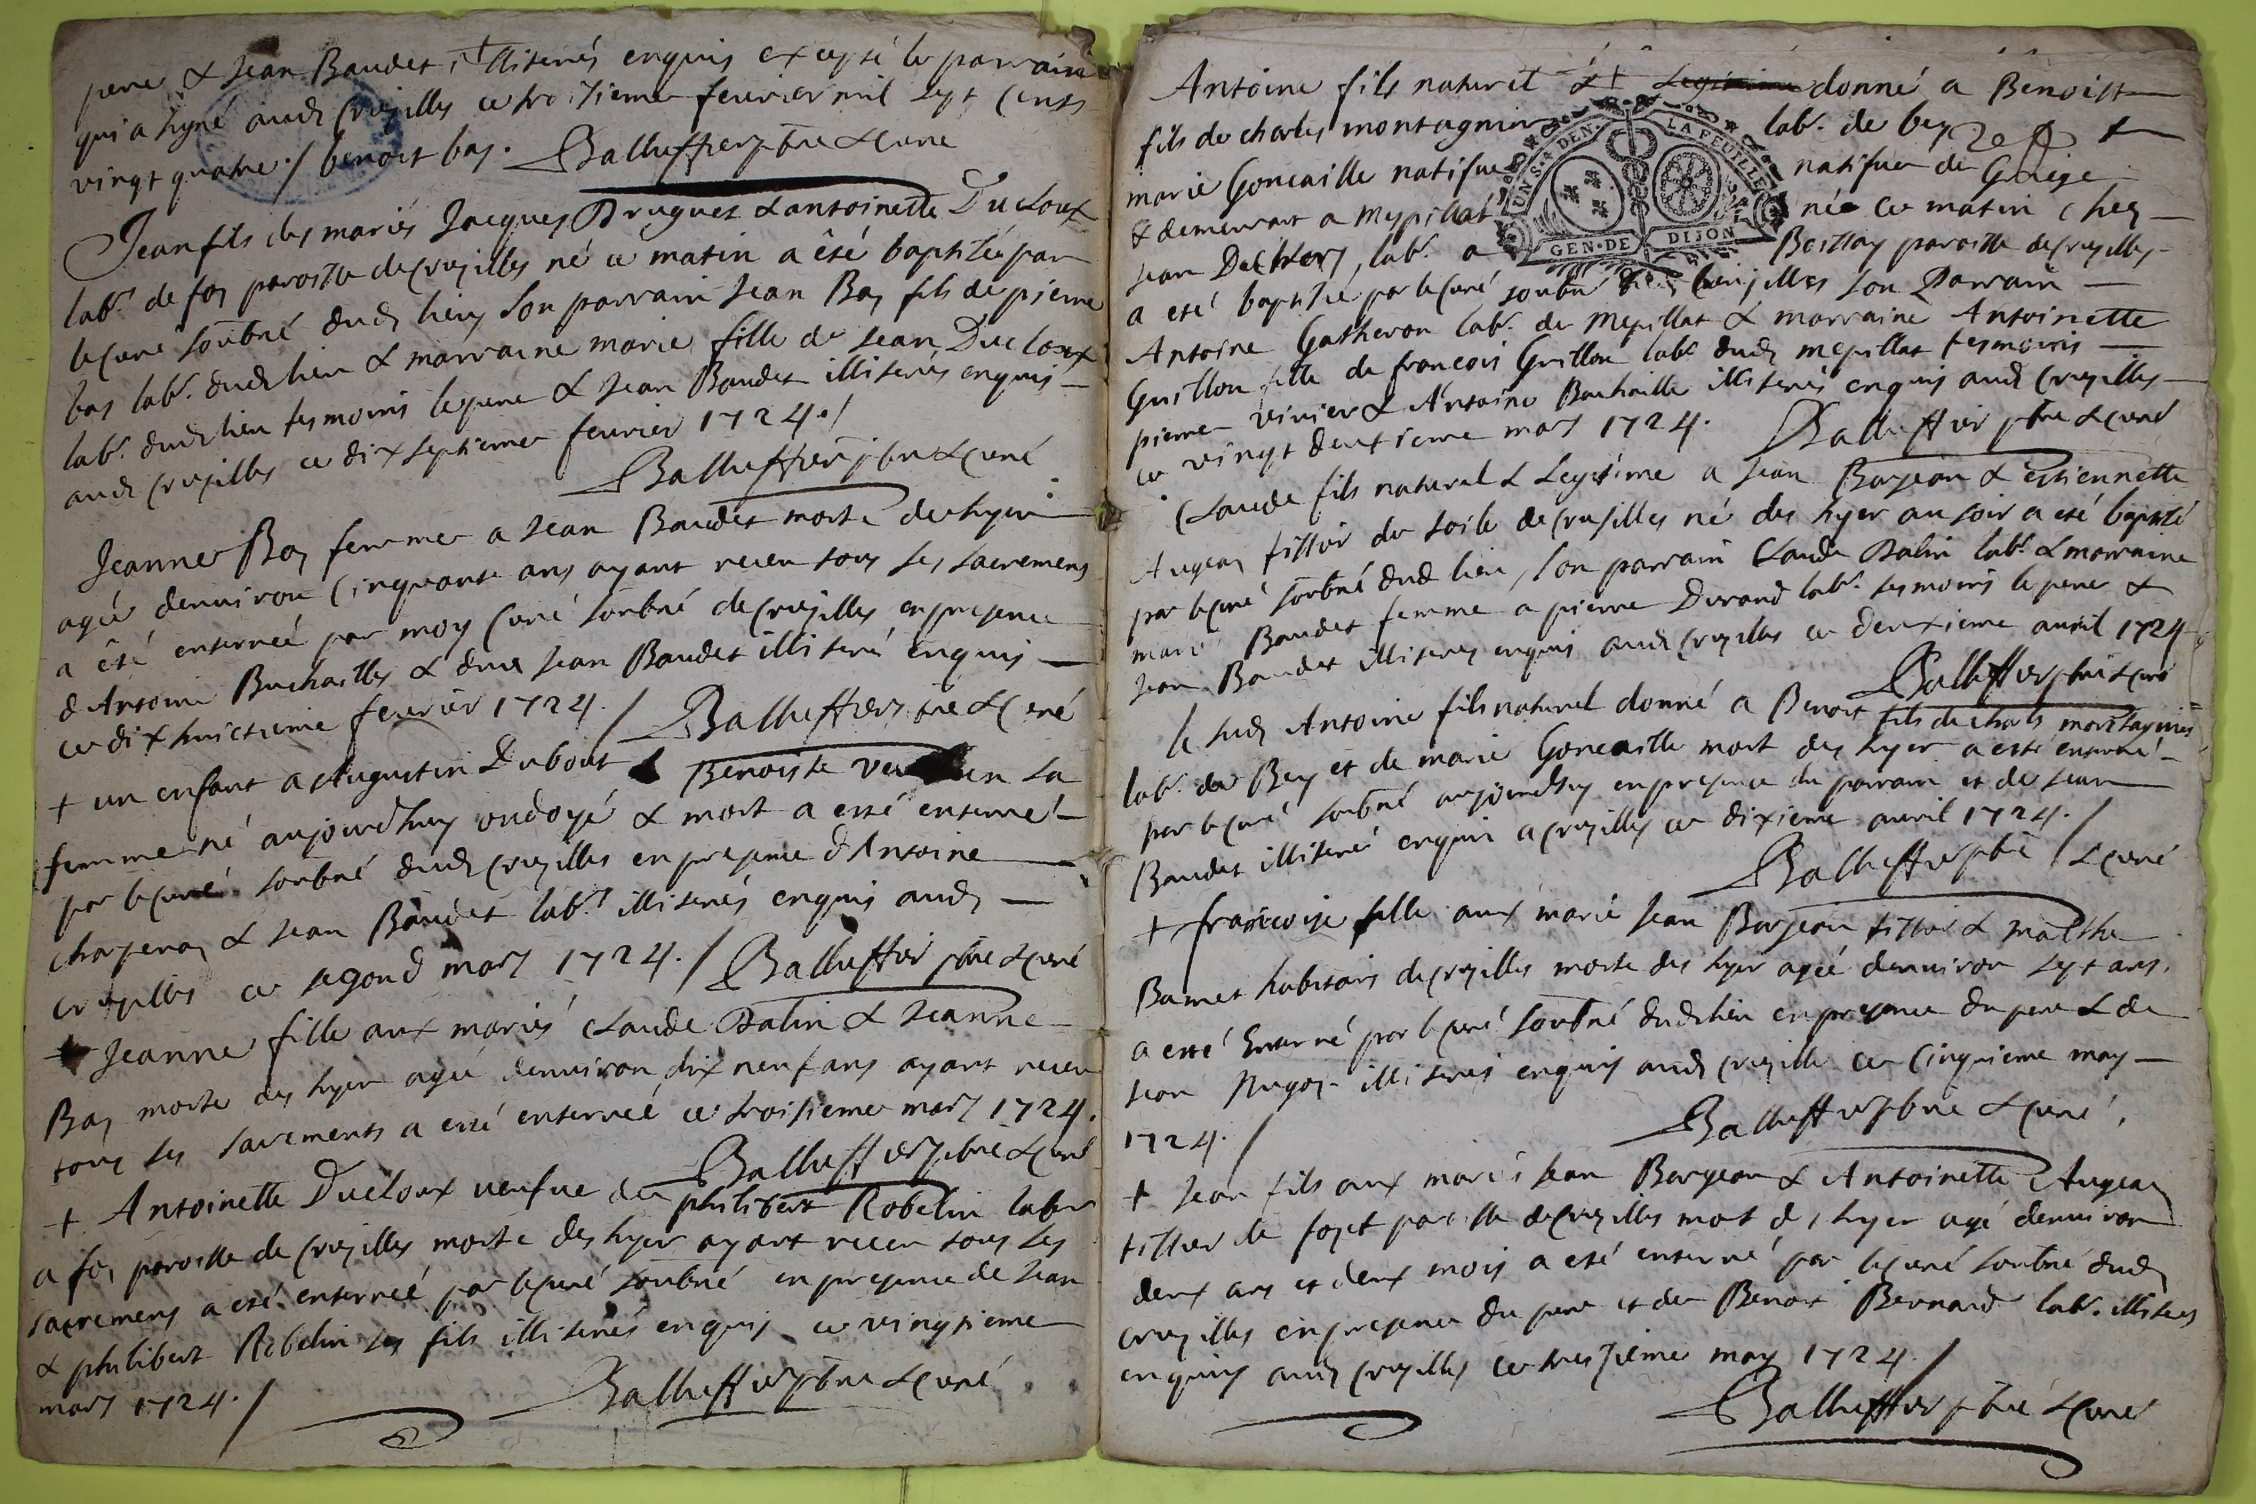 pere & Jean Baudet, illiterés enquis excepté le parrain
qui a signé aud Cruzilles ce troisieme fevrier mil sept cents
vingt quatre ./ benoit bay. Balluffier pbre & curé
Jean fils des mariés Jacques Druguet & antoinette Ducloux
labr. de foy paroisse de cruzilles né ce matin a êté baptisé par
le curé soubné dud lieu, son parrain Jean Bay fils de pierre
bay labr. dud lieu & marraine marie fille de Jean Ducloux
labr. dud lieu tesmoins le pere & Jean Baudet illiterés enquis
aud cruzilles ce dix septieme fevrier 1724 ./
Balluffier pbre & curé
Jeanne Bay femme a Jean Baudet morte de hyer
agée denuiron cinquante ans ayant receu tous les sacremens
a êté enterrée par moy curé soubné de cruzilles en presence
d'Antoine Buchailles & dud Jean Baudet illiteré enquis
ce dix huictieme fevrier 1724 ./ Balluffier pbre & curé
+ un enfant a Augustin Dubout & Benoiste sa
femme né aujourdhuy ondoyé & mort a esté enterré
par le curé soubné dud cruzilles en presence d'Antoine
charpenay & Jean Baudet labrs illiterés enquis aud
cruzilles ce segond mars 1724 ./ Balluffier pbre & curé
+ Jeanne fille aux mariés Claude Dalin & Jeanne
Bay morte des hyer agée denuiron dix neuf ans ayant receu
tous les sacrements a esté enterrée ce troisieme mars 1724.
Balluffier pbre & curé
+ Antoinette Ducloux veufve de philibert Robelin labr
a foy paroisse de Cruzilles morte des hyer ayant receu tous les
sacremens a esté enterrée par le curé soubné en presence de Jean
& philibert Robelin ses fils illiterés enquis ce vingtieme
mars 1724 ./ Balluffier pbre & curé
Antoine fils naturel & legitime donné a Benoist
fils de charles montagnier labr. de bey &
marie Goncaille natifue natifue de Griege
& demeurant a Mepillat né ce matin chez
Jean labr. a Boissay paroisse de cruzilles
a eté baptisé par le curé soubné de cruzilles son Parrain
Antoine Gatheron labr. de Mepillat & marraine Antoinette
Guillon fille de francois Guillon labr dud mepillat tesmoins
pierre vivier & Antoine Buchaille illiterés enquis aud Cruzilles
ce vingt deuxieme mars 1724. Balluffier pbre & curé
Claude fils naturel & Legitime a Jean Barjean & estiennette
Augean tissier de toile de cruzilles né des hyer au soir a eté baptisé
par le curé soubné dud lieu, son parrain Claude Dalin labr. & marraine
marie Baudet femme a pierre Durand labr. tesmoins le pere &
Jean Baudet illiterés enquis aud cruzilles ce deuxieme auril 1724
Balluffier pbre & curé
le sud Antoine fils naturel donné a Benoit fils de charls montagnier
labr. de Bey et de marie Goncaille mort des hyer a esté enterré
par le curé soubné aujourdhuy en presence du parrain et de Jean
Baudet illiteré enquis a cruzilles ce dixieme auril 1724 ./
Balluffier pbre & curé
+ francoise fille aux mariés Jean Barjean tissier & marthe
Bamet habitans de cruzilles morte des hyer agée denuiron sept ans
a esté Enterré par le curé soubné dud lieu en presence du pere & de
Jean illiterés enquis aud cruzille ce cinquieme may
1724 ./ Balluffier pbre & curé.
+ Jean fils aux mariés Jean Bargean & Antoinette Augean
tissier de foyet paroisse de Cruzilles mort des hyer agé denuiron
deux ans et deux mois a esté enterré par le curé soubné dud
cruzilles en presence du pere et de Benoit Bernard labr. illiterés
enquis aud cruzilles ce treizieme may 1724 ./
Balluffier pbre & curé
UN S. 4 DEN. LA FEUILLE
GEN. DE DIJON